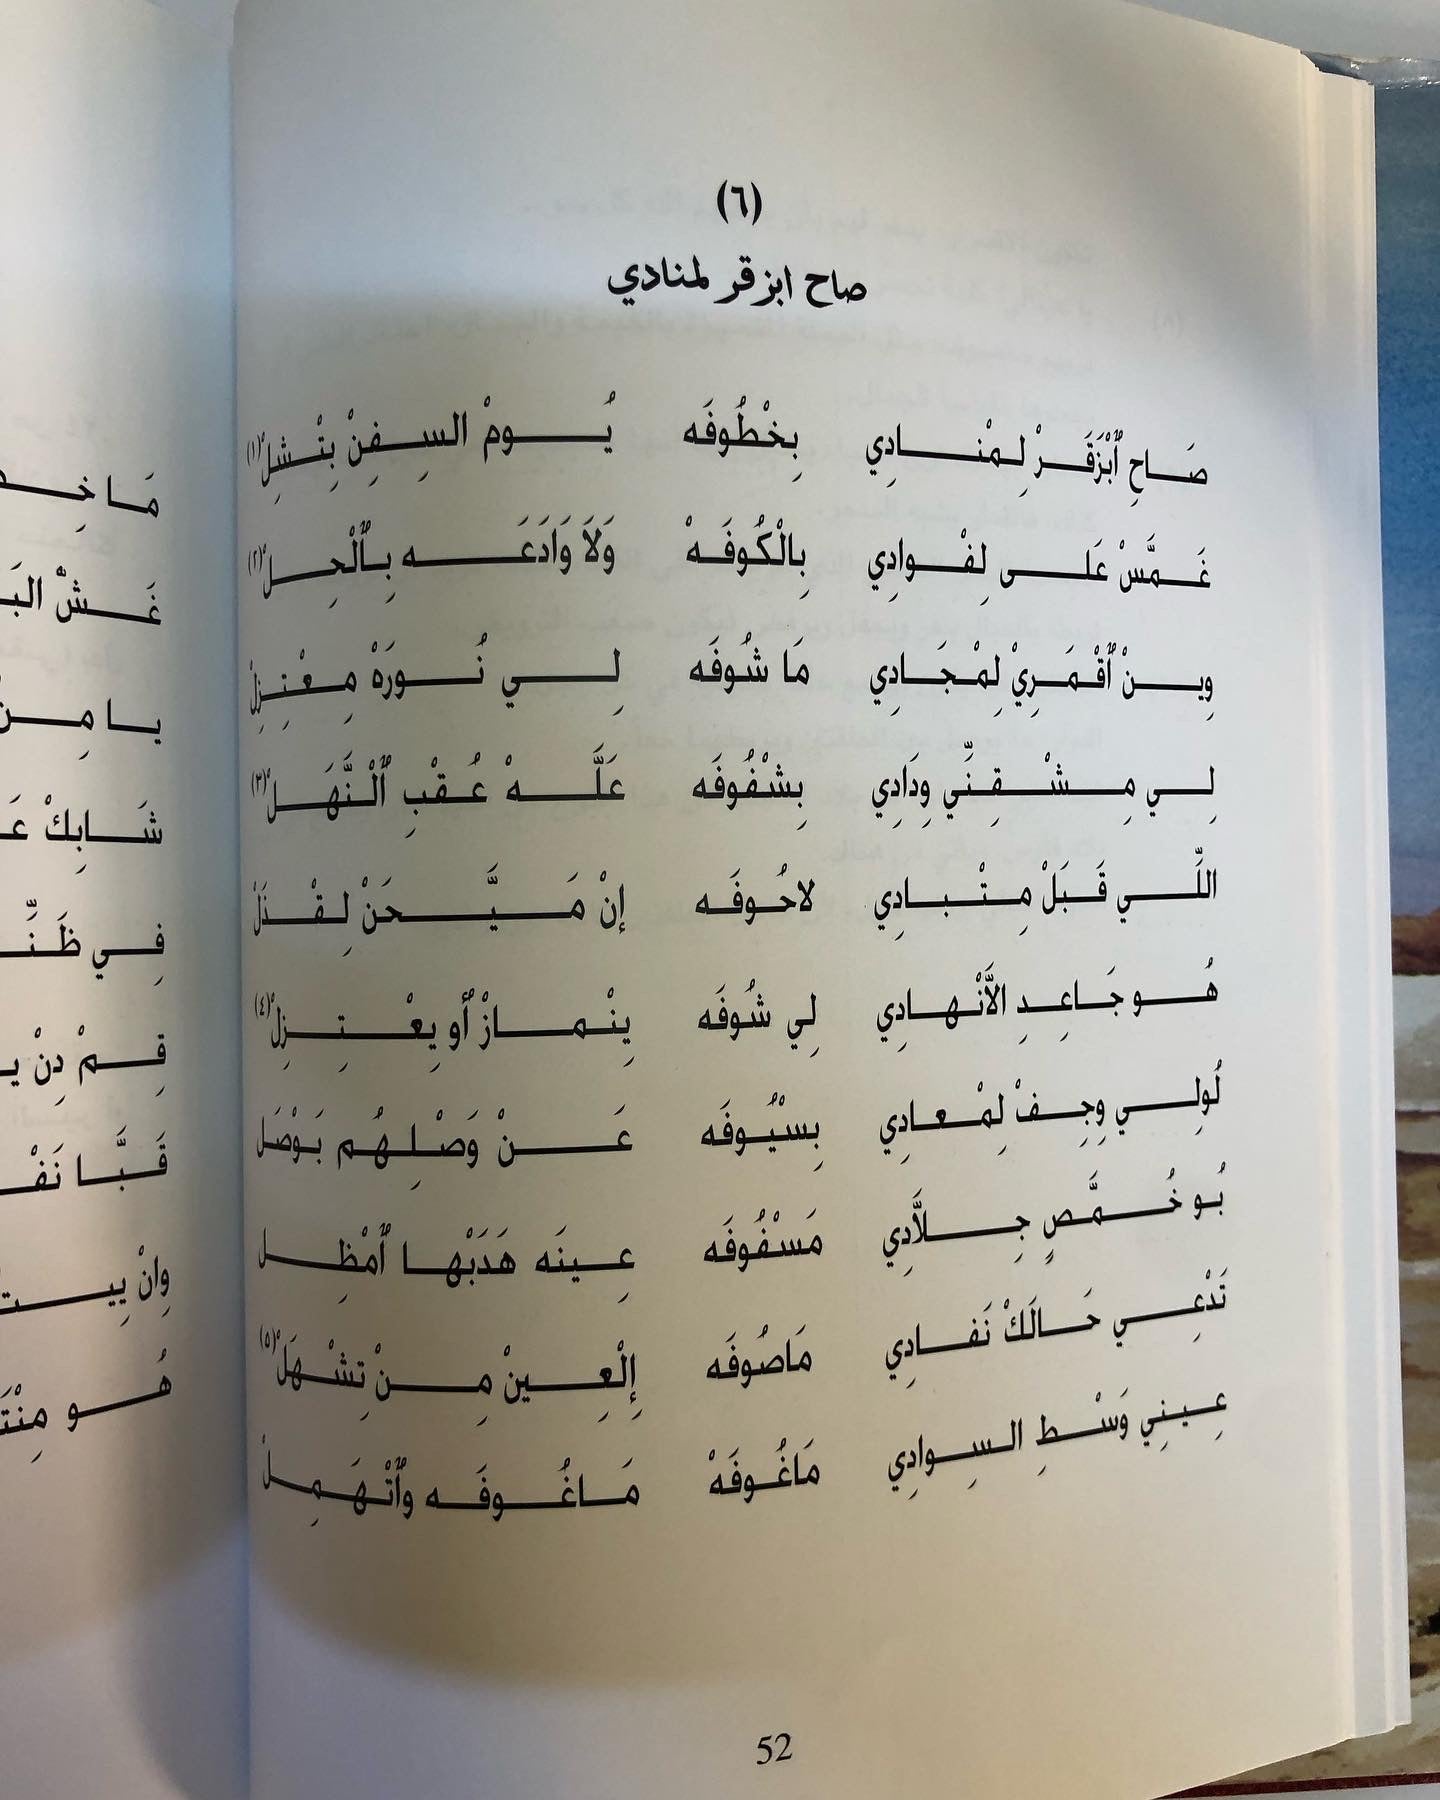 (٦)
صاح ابزقر لمنادي
صَاحِ ٱبْزَقَرْ لِمْنَادِي بِخْطُوفَه يُومْ السِفِنْ بِتْشِلْ(١)
غَمَّسْ عَلى لِفْوادِي بِالْكُوفَهْ وَلاَ وَادَعَه بِٱلْحِلْ(٢)
وِينْ ٱقْمَرِيْ لِمْجَادِي مَا شُوفَه لِي نُورَهْ مِعْتِزِلْ
لِي مِشْقِنِّي وِدَادِي بِشْفُوفَه عَلَّهْ عُقْبِ ٱلْنَّهَلْ(٣)
اللَّي قَبَلْ مِتْبادِي لاحُوفَه إنْ مَيَّحَنْ لِقْذَلْ
هُو جَاعِدِ الاَّنْهادِي لِي شُوفَه يِنْمازْ أو يِعْتِزِلْ(٤)
لُولِي وِجِفْ لِمْعادِي بِسْيُوفَه عَنْ وَصْلِهُم بَوْصَل
بُو خُمَّصٍ جِلاَّدِي مَسْفُوفَه عِينَه هَدَبْها ٱمْظِل
تَدْعِي حَالَكْ نَفادِي مَاصُوفَه إِلْعِينْ مِنْ تِشْهَلْ(٥)
عِينِي وَسْطِ السِوادِي مَاغُوفَهْ مَاغُوفَه وٱتْهَمِلْ
52
مَا خِ
غَشْ الَ
يا مِنْ
شَابِكْ عَ
فِي ظَنَّ
قِمْ دِنْ يـ
قَبَّا نَفْ
وِانْ يِيـ
هُو مِنْتَ